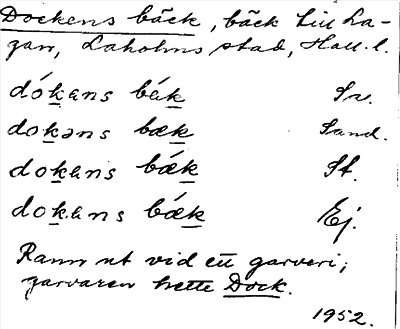 Dockens bäck, bäck till La-
gan, Laholms stad, Hall. l.
dókans bǽk Sv.
dokəns bæk Sand.
dokans bǽk St.
dokans bǽk Ej.
Rann ut vid ett garveri;
garvaren hette Dock.
1952.